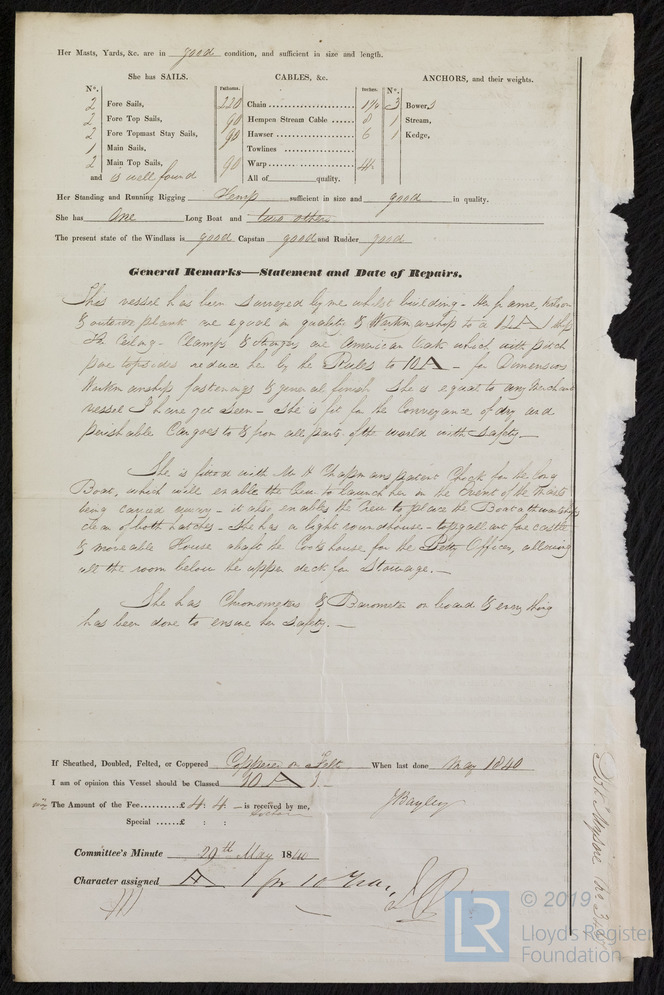 Her Masts, Yards, &c. are in good condition, and sufficient in size and length.
She has SAILS.
CABLES, &c.
ANCHORS, and their weights.
No.
Fathoms.
Inches.
No.
2 Fore Sails, 220 Chain 3 Bowers
2 Fore Top Sails, 90 Hempen Stream Cable 8 1 Stream,
2 Fore Topmast Stay Sails, 90 Hawser 6 1 Kedge,
1 Main Sails, Towlines
2 Main Top Sails, 90 Warp 4
and is well found All of quality.
Her Standing and Running Rigging Hemp sufficient in size and good in quality.
She has One Long Boat and two others
The present state of the Windlass is good Capstan good and Rudder good
General Remarks—Statement and Date of Repairs.
This vessel has been surveyed by me whilst building - Her frame,
& outside plank are equal in quality & Workmanship to a 12 A 1 Ship
The Ceiling - Clamps & are American Oak which with pitch
pine topsides reduce her by the Rules to 10 A - for Dimensions
Workmanship fastenings & general finish She is equal to any Merchant
vessel I have yet seen - She is fit for the Conveyance of dry and
perishable Cargoes to & from all parts of the world with Safety. —
She is fitted with Mr H Chapmans patent Chock for the Long
Boat, which will enable the Crew to launch her in the Event of the Masts
being carried away - it also enables the Crew to place the Boat athwartships
clear of both hatches - She has a light roundhouse - topgallant forecastle
& moveable House abaft the Cookhouse for the Petty Officers, allowing
all the room below the upper deck for Stowage. —
She has Chronometers & Barometer on board & every thing
has been done to ensure her Safety. —
If Sheathed, Doubled, Felted, or Coppered Coppered on Felt When last done May 1840
I am of opinion this Vessel should be Classed 10 A 1. —
The Amount of the Fee..........£ 4 : 4 — is received by me,
J Bayley
Special ......£ : :
Committee's Minute 29th May 1840
Character assigned A 1 for 10 Years
Mysore
© 2019
LR
Lloyd's Register
Foundation